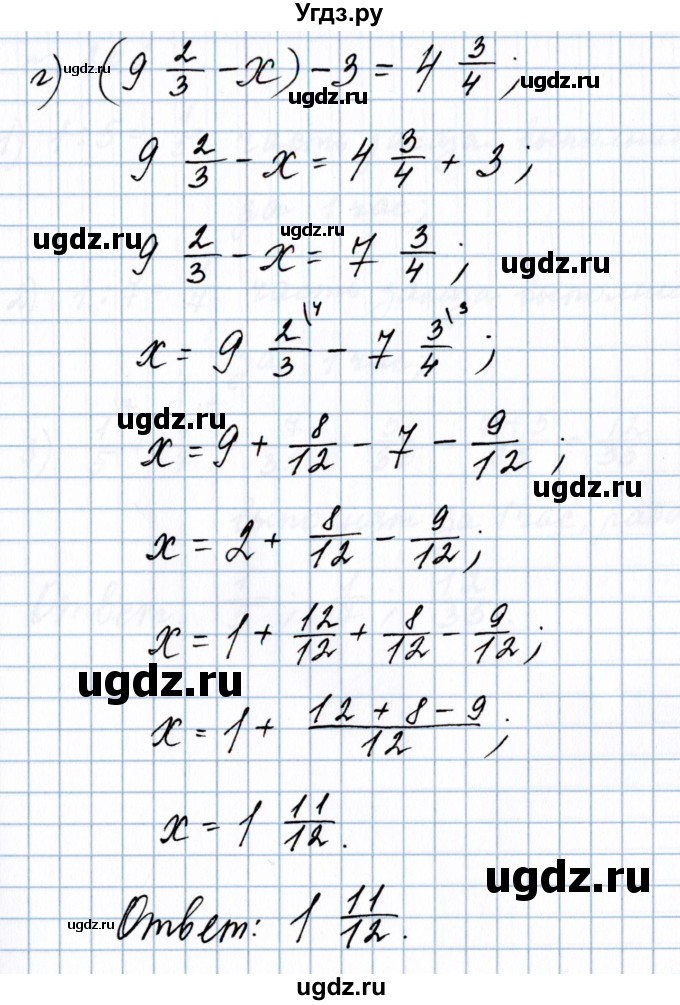 Угдз.ру
г) (9 2/3 - x) - 3 = 4 3/4;
ugdz.ru
ugdz.ru
ugdz.ru
9 2/3 - x = 4 3/4 + 3;
ugdz.ru
ugdz.ru
9 2/3 - x = 7 3/4;
ugdz.ru
x = 9 2/3 \4 - 7 3/4 \3;
ugdz.ru
x = 9 + 8/12 - 7 - 9/12;
ugdz.ru
x = 2 + 8/12 - 9/12;
x = 1 + 12/12 + 8/12 - 9/12;
ugdz.ru
x = 1 + (12 + 8 - 9)/12;
x = 1 11/12.
ugdz.ru
Ответ: 1 11/12.
ugdz.ru
ugdz.ru
ugdz.ru